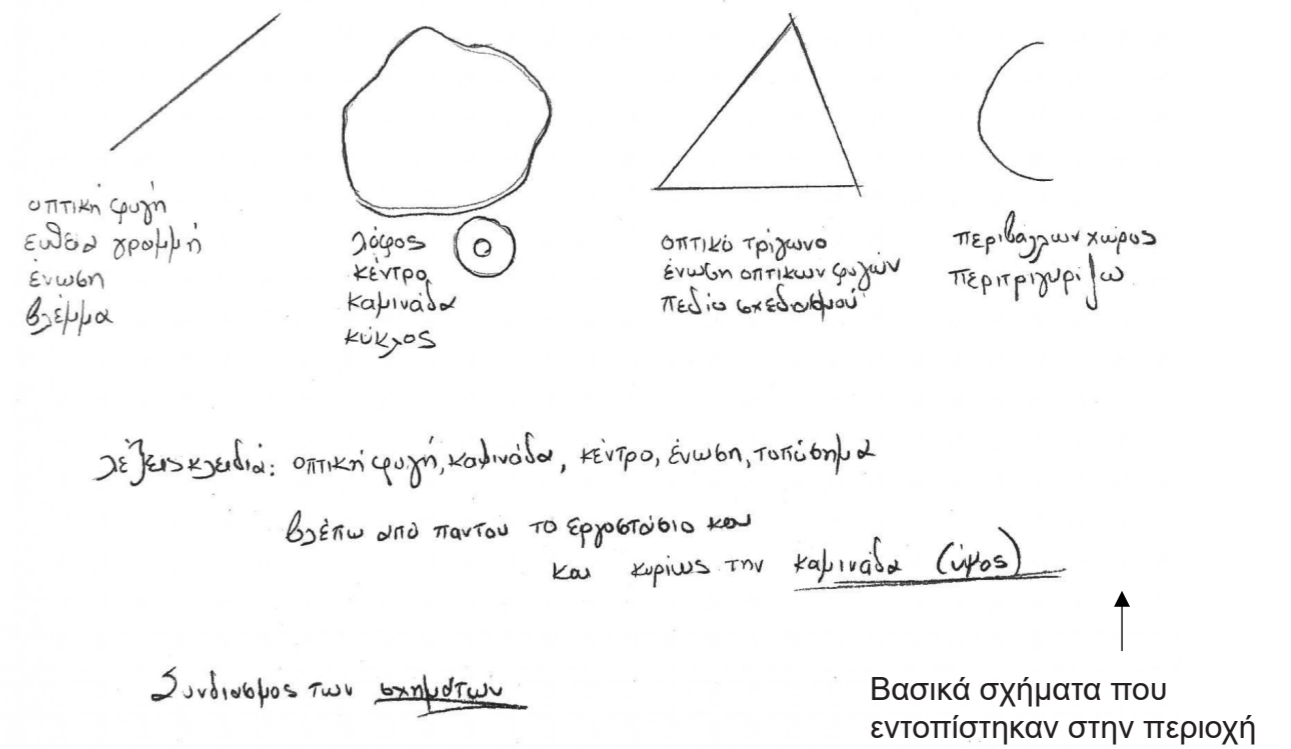 οπτική φυγή
ευθεία γραμμή
ένωση
βλέμμα
λόφος
κέντρο
καμινάδα
κύκλος
οπτικό τρίγωνο
ένωση οπτικών φυγών
πεδίο σχεδιασμού
περιβάλλων χώρος
περιτριγυρίζω
λέξεις κλειδιά: οπτική φυγή, καμινάδα, κέντρο, ένωση, τοπόσημα
βλέπω από παντού το εργοστάσιο και
και κυρίως την καμινάδα (ύψος)
Συνδιασμος των σχημάτων
Βασικά σχήματα που
εντοπίστηκαν στην περιοχή